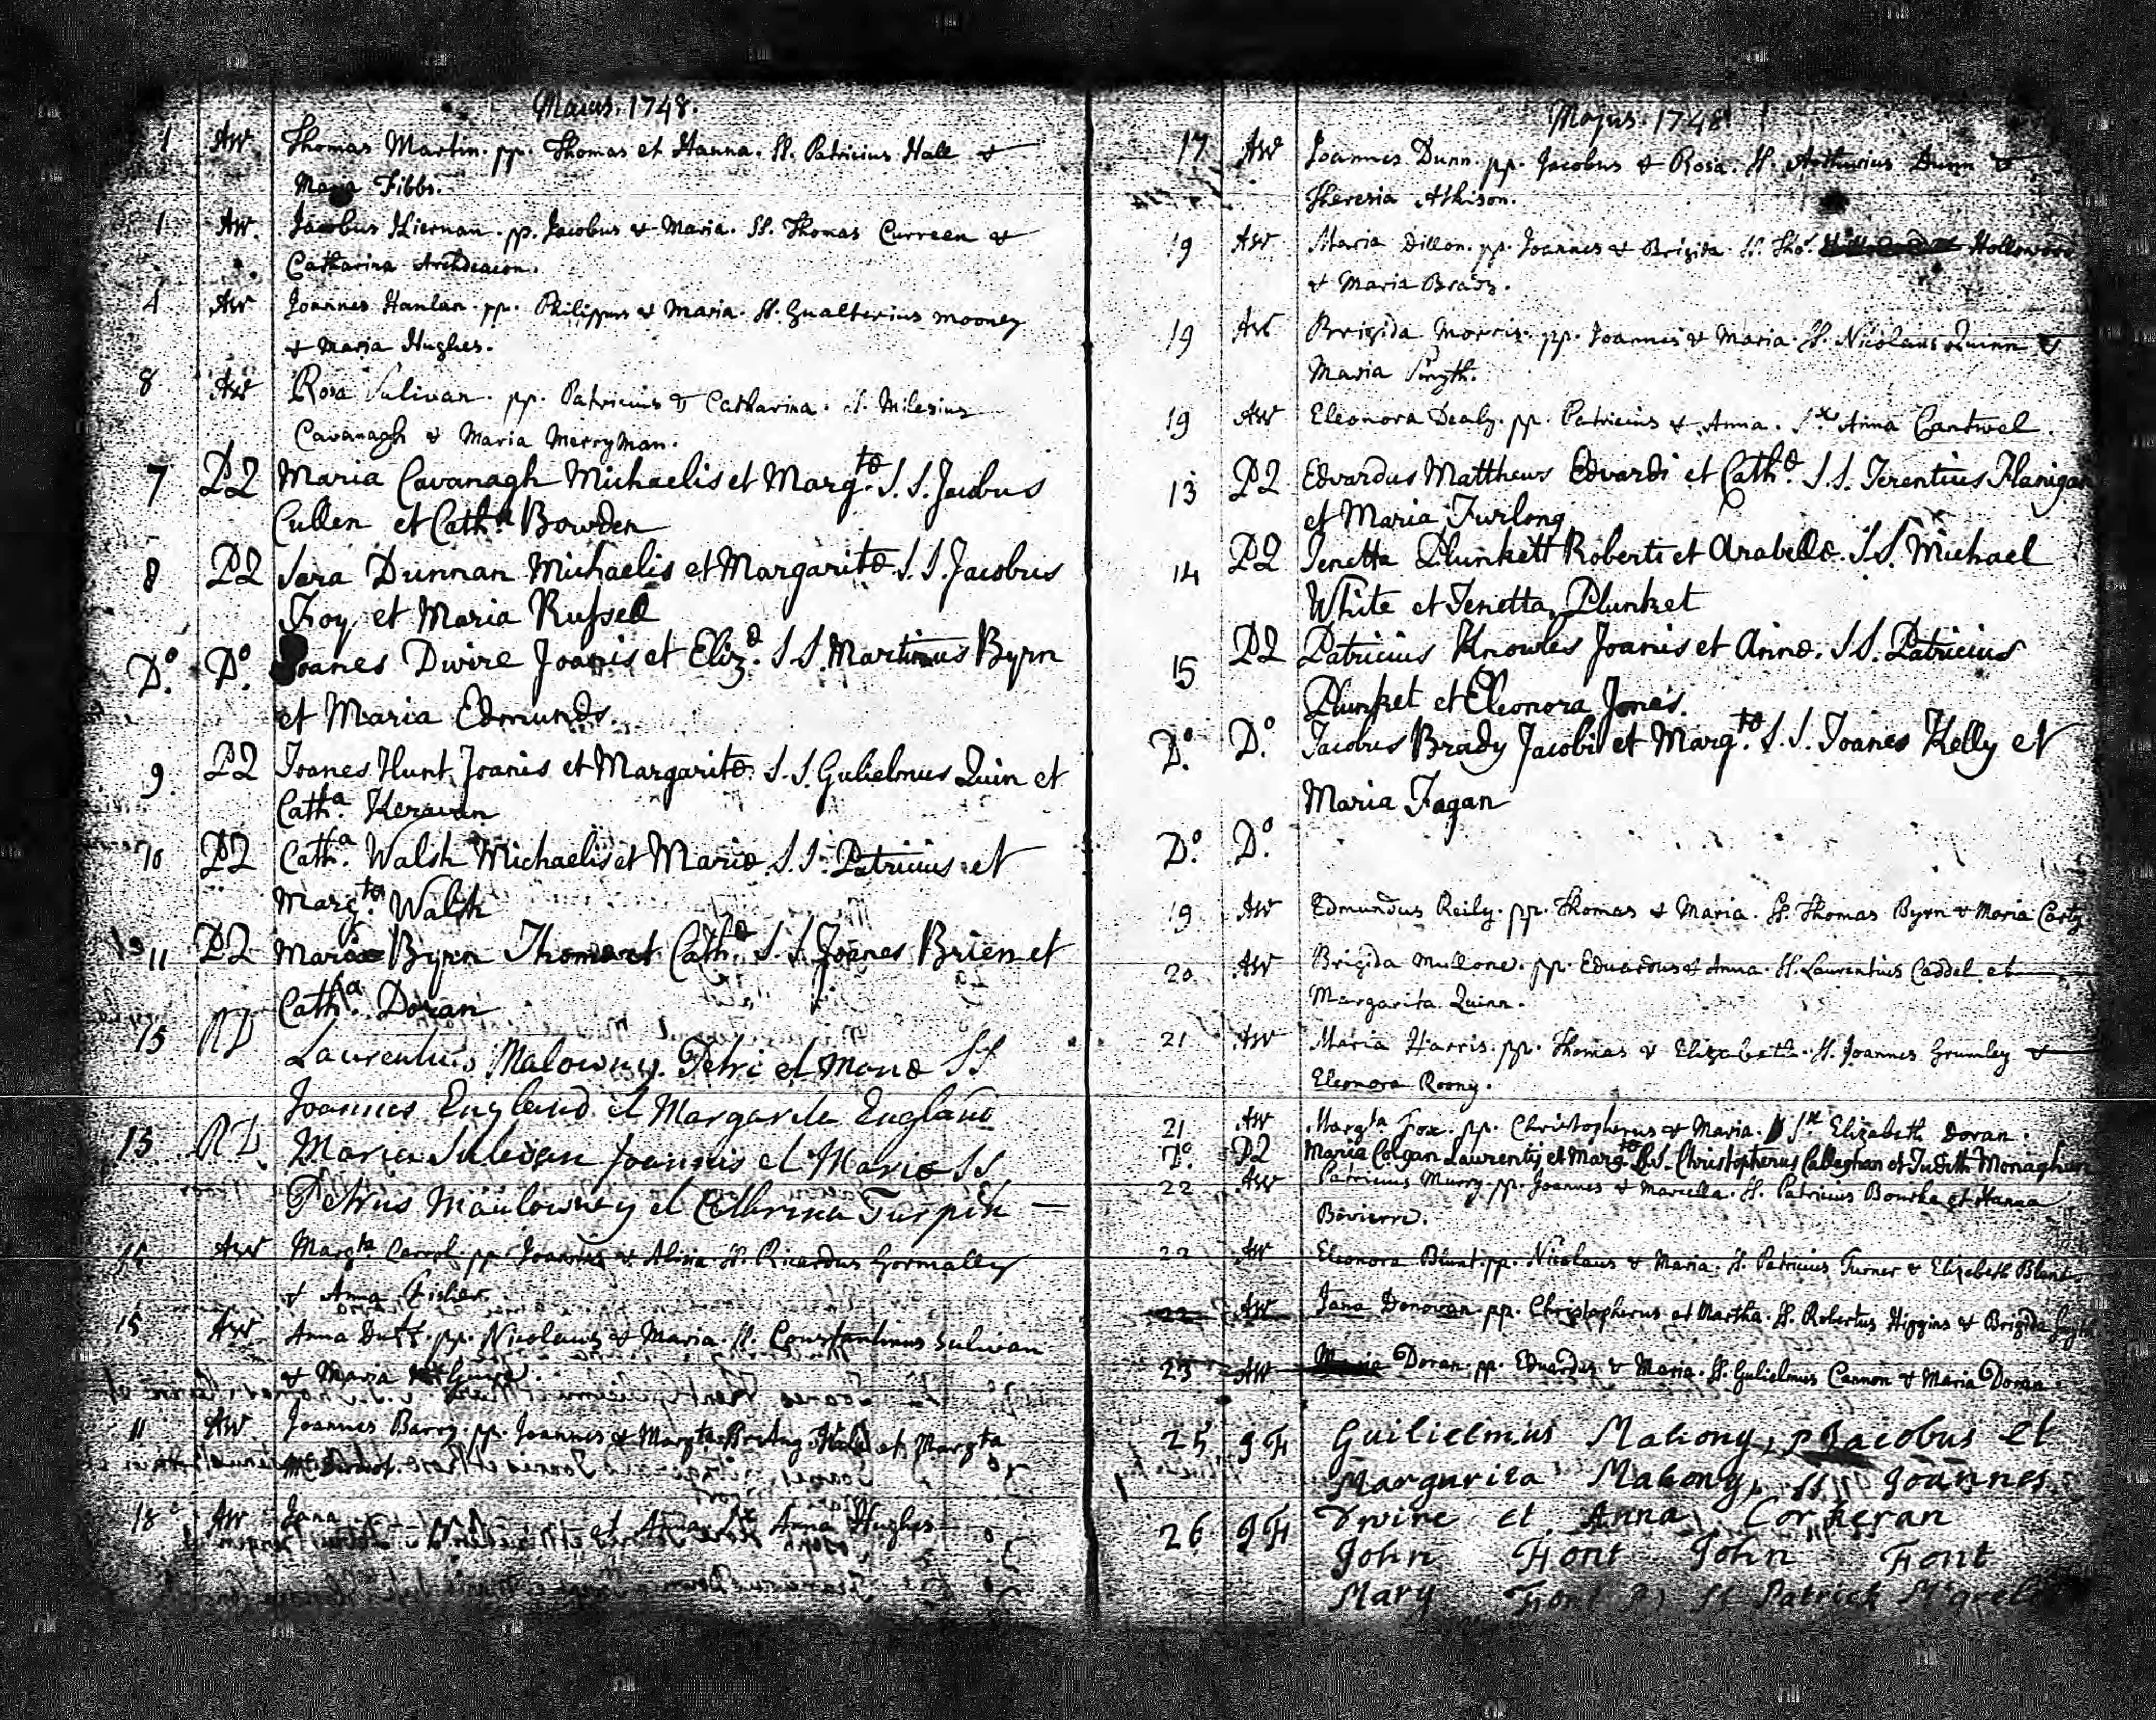 Maius. 1748.
1 AW Thomas Martin. pp. Thomas et Hanna. SS. Patricius Hall &
Maria Fibbs.
1 AW. Jacobus Kiernan. pp. Jacobus & Maria. SS. Thomas Curreen &
Catharina Archdeacon.
4 AW Joannes Hanlan. pp. Philippus & Maria. SS. Gualterius Mooney
& Maria Hughes.
8 AW Rosa Sulivan. pp. Patricius & Catharina. SS. Milesius
Cavanagh & Maria Merryman.
7 PL Maria Cavanagh Michaelis et Marg.tæ S.S. Jacobus
Cullen et Cath.a Bowden
8 PL Sara Dunnan Michaelis et Margaritæ S.S. Jacobus
Froy et Maria Russel
D.o D.o Joanes Dwire Joanis et Eliz.æ S.S. Martinus Byrn
et Maria Edmunds.
9 PL Joanes Hunt Joanis et Margaritæ. S.S. Gulielmus Quin et
Cath.a Keravan
10 PL Cath.a Walsh Michaelis et Mariæ S.S. Patricius et
Marg.ta Walsh
11 PL Maria Byrn Thomæ et Cath.æ S.S. Joanes Brien et
Cath.a Doran
15 RD Laurentius Malowny Petri et Mariæ SS
Joannes England et Margarita England
15 RD Maria Sulivan Joannis et Mariæ SS
Petrus Maulowny et Cathrina Turpin
AW Margta Carrol. pp. Joannes & Alisia SS. Ricardus Gormally
& Anna Fisher.
15 AW Anna Duff. pp. Nicolaus & Maria. SS. Constantinus Sulivan
& Maria
11 AW. Joannes Barry. pp. Joannes & Margta et Margta
18 AW Jana et Anna Anna Hughes
Majus. 1748.
17 AW Joannes Dunn. pp. Jacobus & Rosa. SS. Arthurius Dunn &
Theresia Atkison.
19 AW Maria Dillon. pp. Joannes & Brigida. SS. Thos. Hollowood
& Maria Brady.
19 AW Brigida Morris. pp. Joannes & Maria. SS. Nicolaus Quinn &
Maria Smyth.
19 AW Eleonora Dealy. pp. Patricius & Anna. Sx Anna Cantwel.
13 PL Edvardus Matthews Edvardi et Cath.æ S.S. Terentius Flanigan
et Maria Furlong
14 PL Jenetta Plunkett Roberti et Arabellæ. S.S. Michael
White et Jenetta Plunket
15 PL Patricius Knowles Joanis et Annæ. S.S. Patricius
Plunket et Eleonora Jones.
D.o D.o Jacobus Brady Jacobi et Marg.tæ S.S. Joanes Kelly et
Maria Fagan
D.o D.o
19 AW Edmundus Reily. pp. Thomas & Maria. SS. Thomas Byrn & Maria Carty
20 AW Brigida Mullone. pp. Eduardus & Anna. SS. Laurentius Caddel et
Margarita Quinn.
21 AW Maria Harris. pp. Thomas & Elizabeth. SS. Joannes Grumley &
Eleonora Roony.
21 AW Margta Fox. pp. Christopherus & Maria. Elizabeth Doran.
D.o PL Maria Colgan Laurentij et Marg.tæ S.S. Christopherus Callaghan et Judith Monaghan
22 AW Patricius Murry. pp. Joannes & Marcella. SS. Patricius Bourke et Hanna
Bovierre.
22 AW Eleonora Blunt. pp. Nicolaus & Maria. SS. Patricius Turner & Elizabeth Blunt
22 AW Jana Donovan. pp. Christopherus et Martha. SS. Robertus Higgins & Brigida Smyth
23 AW Doran. pp. Eduardus & Maria. SS. Gulielmus Cannon & Maria Doran
25 JH Guilielmus Mahony, p Jacobus et
Margarita Mahony, SS Joannes
Dwire et Anna Corkeran
26 JH John Font John Font
Mary Font SS Patrick